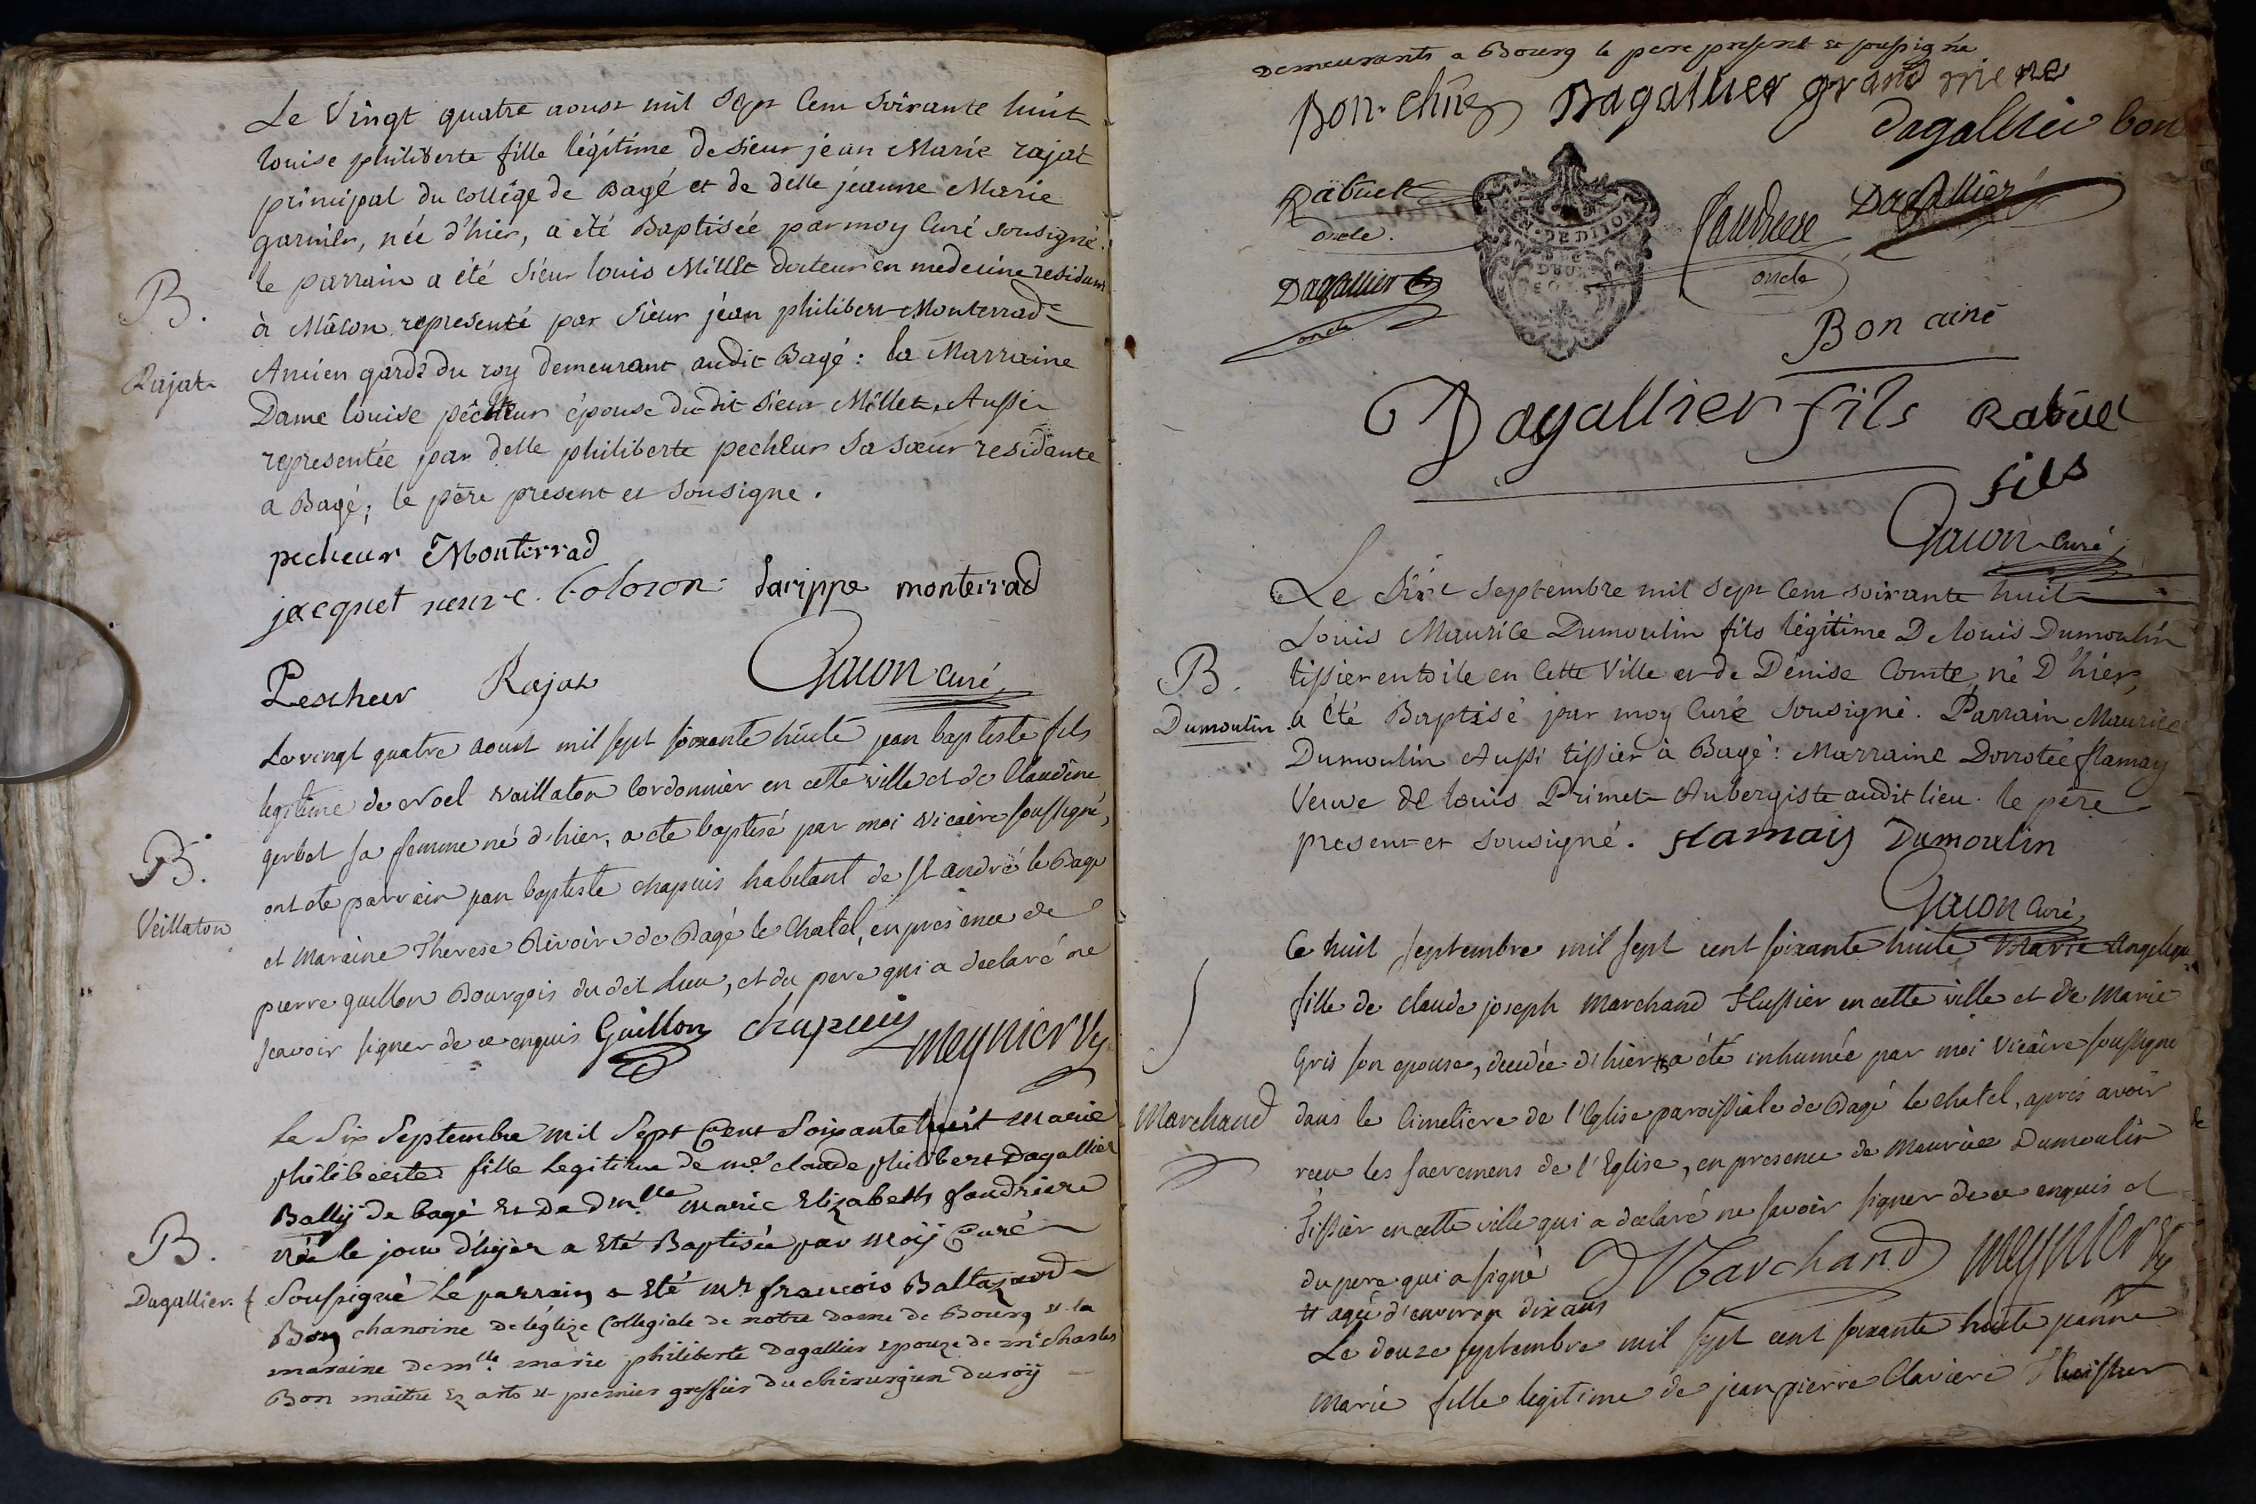 Le Vingt quatre aoust mil Sept Cent Soixante huit
louise philiberte fille légitime de sieur jéan Marie rajat
principal du Collége de Bagé et de delle jéanne Marie
garnier, née d'hiér, a été Baptisée par moy Curé sousigné.
le parrain a été sieur louis Millet docteur en medecine residant
à Mâcon representé par sieur jéan philibert Monterrad
B.
Ancien garde du roy demeurant audit Bagé : la Marraine
Rajat
Dame louise pêcheur épouse dudit sieur Millet, Aussi
representée par delle philiberte pecheur sa sœur residante
a Bagé, le père présent et sousigne.
pecheur Monterrad
jacquet neuve. larippe monterrad
Pescheur Rajat Gacon curé
Le vingt quatre aoust mil sept soixante huite jean baptiste fils
legitime de Noel vaillaton Cordonnier en cette ville et de Claudine
gerbet sa femme né d'hier, a ete baptisé par moi vicaire soussigné,
B.
ont ete parrain jean baptiste chapuis habitant de st andré le Bagé
Veillaton
et Maraine Therese Rivoire de Bagé le Chatel, en presence de
pierre guillon Bourgois dudit lieu, et du pere qui a declaré ne
scavoir signer de ce enquis Guillon chapuis Meynier Vic.
Le Six Septembre mil Sept Cent Soixante huit marie
philibeerte fille Legitime de mr. claude philibert Dagallier
Bally de bagé Et De dmlle marie Elizabeth faudriere
née le jour d'hyer a Eté Baptisée par Moy Curé
B.
Dagallier.
Soussigné Le parrain a Eté mr françois Baltazard
Bon chanoine de léglize Collegiale de notre dame de Bourg et la
maraine demlle marie philiberte Dagallier epouze de mr charles
Bon maitre Ez arts et premier greffier du chirurgien du roy
Demeurants a Bourg le pere present et soussigné
Bon. chne Dagallier grand mere
dagallier bon
Rabuel
oncle.
faudriere Dagallier
oncle
Dagallier
oncle
Bon ainé
Dagallier fils Rabuel
fils
Gacon curé
Le Sixt Septembre mil Sept Cent soixante huit
Louis Maurice Dumoulin fils légitime De louis Dumoulin
B.
tissier en toile en Cette Ville et de Dénise Comte, né D'hier,
Dumoulin
a été Baptisé par moy Curé Sousigné. Parrain Maurice
Dumoulin Aussi tissier à Bagé : Marraine Dorrotée flamay
Veuve de louis Primet Aubergiste audit lieu. le père
present et sousigné. flamais Dumoulin
Gacon Curé
Ce huit septembre mil sept cent soixante huite Marie Angelique
fille de claude joseph Marchand Huissier en cette ville et de Marie
S
Gris son epouse, decedée d'hier # a été inhumée par moi Vicaire soussigné
Marchand
dans le Cimetiere de l'Eglise paroissiale de Bagé le chatel, aprés avoir
recu les sacremens de l'Eglise, en presence de Maurice Dumoulin
Tissier en cette ville qui a declaré ne savoir signer de ce enquis et
du pere qui a signé Marchand Meynier Vic
# agée d'environ dix ans
Le douze septembre mil sept cent soixante huite jeanne
Marie fille legitime de jean pierre Claviere Huissier